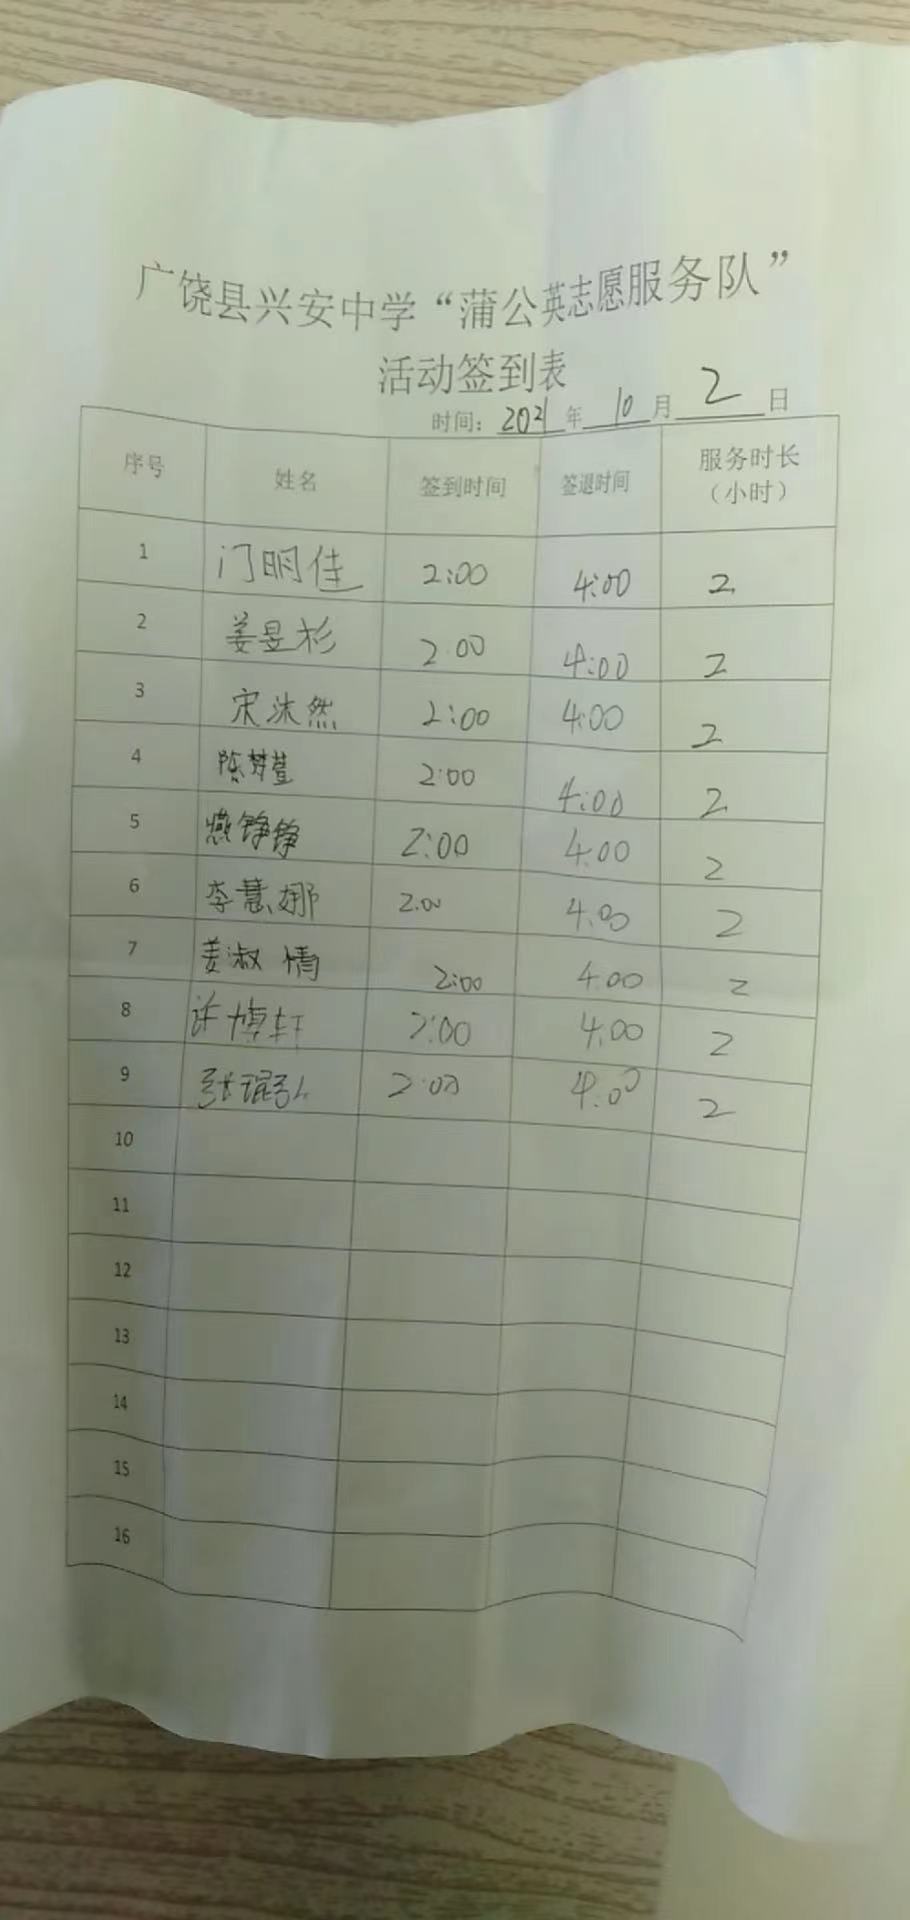 广饶县兴安中学“蒲公英志愿服务队”
活动签到表
时间：2021年10月2日
序号 姓名 签到时间 签退时间 服务时长（小时）
1 门明佳 2:00 4:00 2
2 姜昱杉 2:00 4:00 2
3 宋沐然 2:00 4:00 2
4 陈梦萱 2:00 4:00 2
5 燕铮铮 2:00 4:00 2
6 李慧娜 2:00 4:00 2
7 姜淑情 2:00 4:00 2
8 许博轩 2:00 4:00 2
9 张琨弘 2:00 4:00 2
10
11
12
13
14
15
16